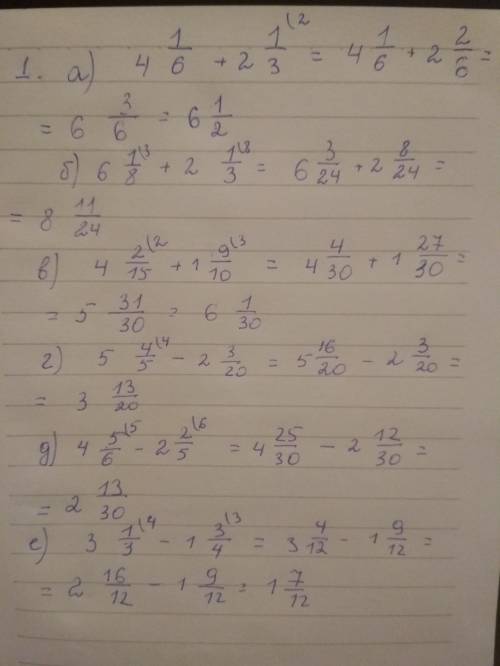 1. а) 4 1/6 + 2 1/3 (2 = 4 1/6 + 2 2/6 =
= 6 3/6 = 6 1/2
б) 6 1/8 (3 + 2 1/3 (8 = 6 3/24 + 2 8/24 =
= 8 11/24
в) 4 2/15 (2 + 1 9/10 (3 = 4 4/30 + 1 27/30 =
= 5 31/30 = 6 1/30
г) 5 4/5 (4 - 2 3/20 = 5 16/20 - 2 3/20 =
= 3 13/20
д) 4 5/6 (5 - 2 2/5 (6 = 4 25/30 - 2 12/30 =
= 2 13/30
е) 3 1/3 (4 - 1 3/4 (3 = 3 4/12 - 1 9/12 =
= 2 16/12 - 1 9/12 = 1 7/12